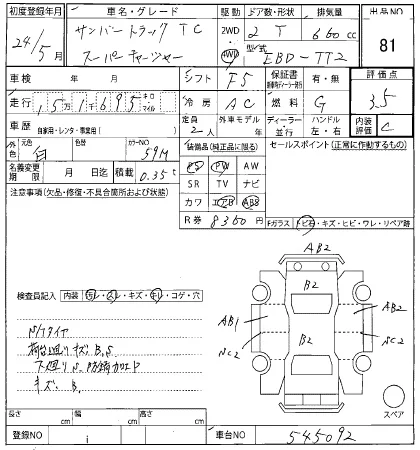 初度登録年月
24/5月
車名・グレード
サンバートラック TC
スーパーチャージャー
駆動
2WD
4WD
ドア数・形状
2 T
排気量
660cc
型式
EBD-TT2
出品NO
81
車検 年 月
シフト F5
保証書
有・無
評価点
3.5
走行 15万1千695 キロ マイル
冷房 AC
燃料 G
車歴
自家用・レンタ・事業用( )
定員
2人
外車モデル
年
ディーラー
・
並行
ハンドル
左・右
内装
評価
C
外色 白
色替
カラーNO
59M
装備品(純正品に限る)
PS PW AW
SR TV ナビ
カワ エアB ABS
R券 8360円
セールスポイント(正常に作動するもの)
名義変更
期限
月 日迄
積載 0.35t
注意事項(欠品・修復・不具合箇所および状態)
Fガラス トビ石・キズ・ヒビ・ワレ・リペア跡
検査員記入 内装 ヨレ・スレ・キズ・キレ・コゲ・穴
N/Tタイヤ
荷台廻りキズ、B,S
下廻りS、防錆加工ト
キズ、B,
AB2
B2
AB1
AB2
B2
NC2
NC2
スペア
長さ cm
幅 cm
高さ cm
登録NO
i
車台NO
545092